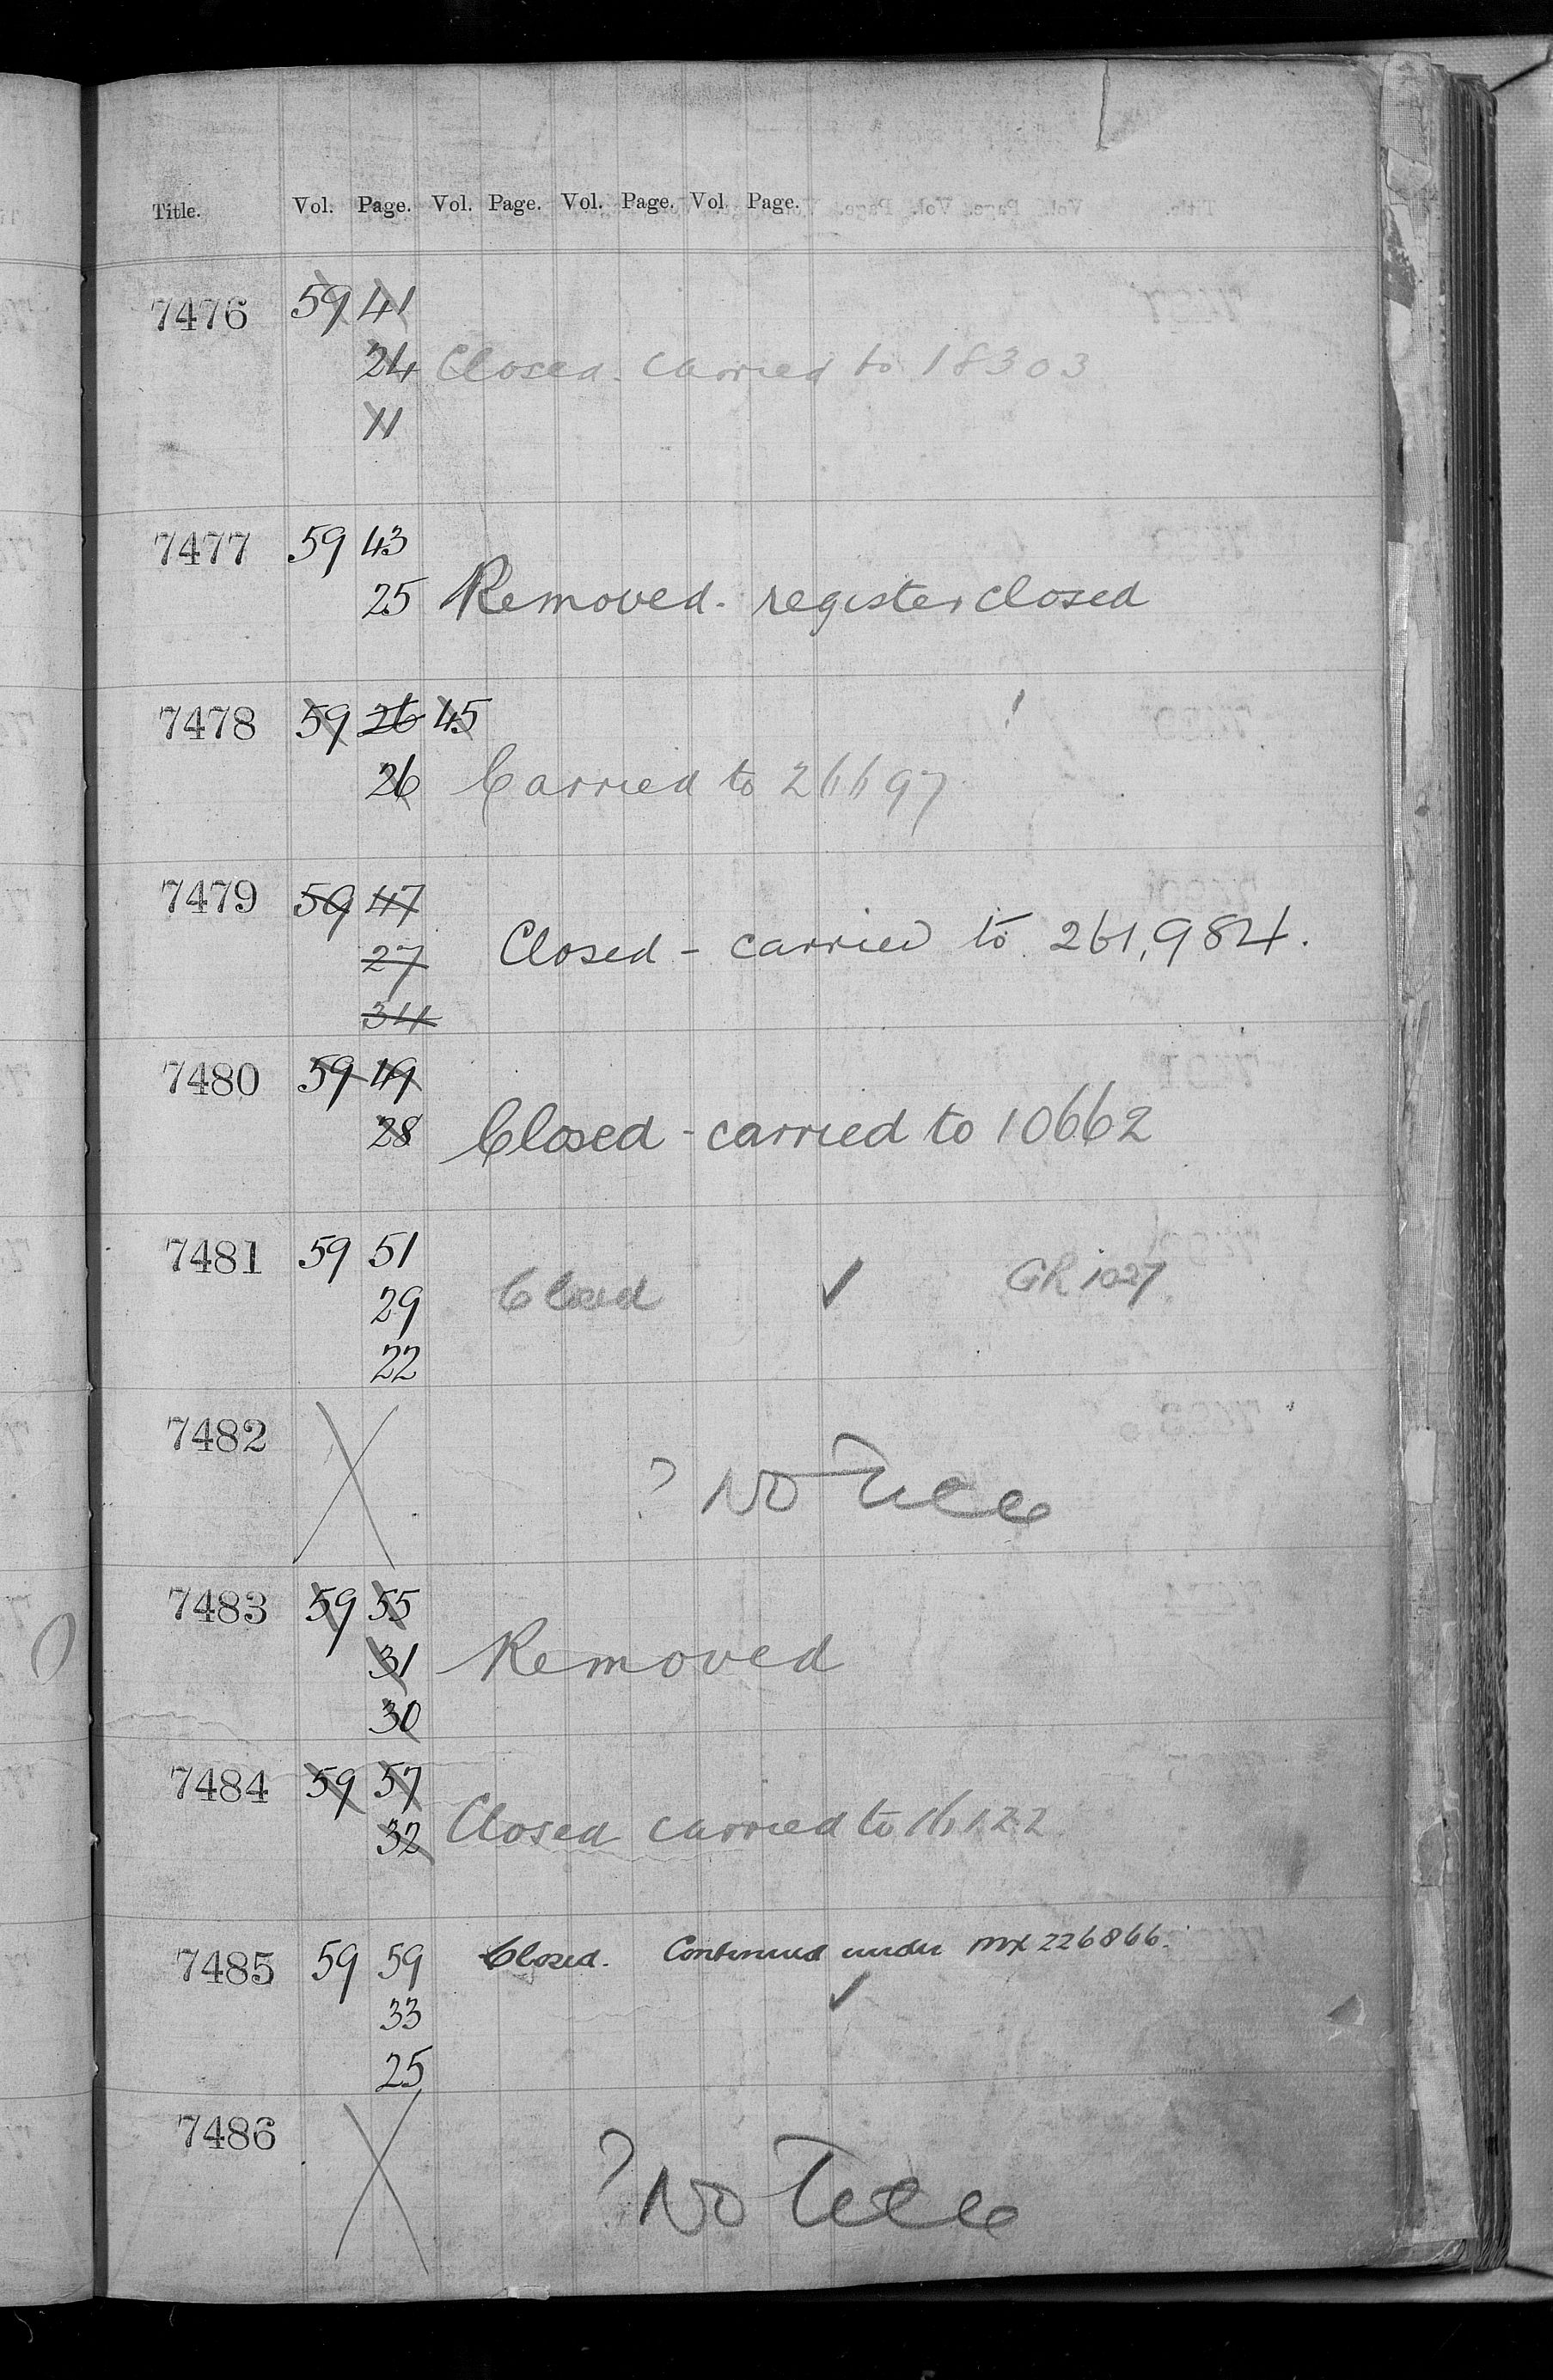 Title. Vol. Page. Vol. Page. Vol. Page. Vol Page.
7476 59 41
24 Closed. carried to 18303
11
7477 59 43
25 Removed. register closed
7478 59 26 45
26 Carried to 26697
7479 59 47
27 Closed - carried to 261,984.
34
7480 59 49
28 Closed - carried to 10662
7481 59 51
29 Closed ✓ GR 1027
22
7482
? No Title
7483 59 55
31 Removed
30
7484 59 57
32 Closed carried to 16122
7485 59 59 Closed. Continued under MX 226866.
33 ✓
25
7486
? No Title